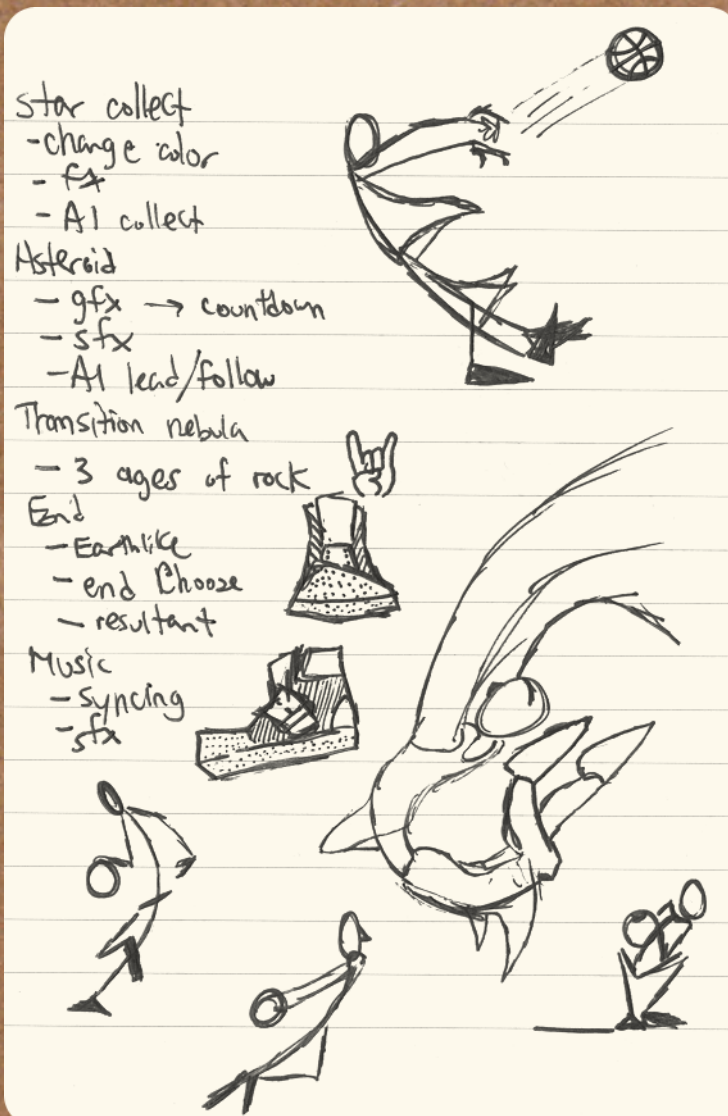 star collect
-change color
- fx
- AI collect
Asteroid
- gfx → countdown
- sfx
-AI lead/follow
Transition nebula
- 3 ages of rock
End
-Earthlike
- end Chooze
- resultant
Music
- syncing
- sfx